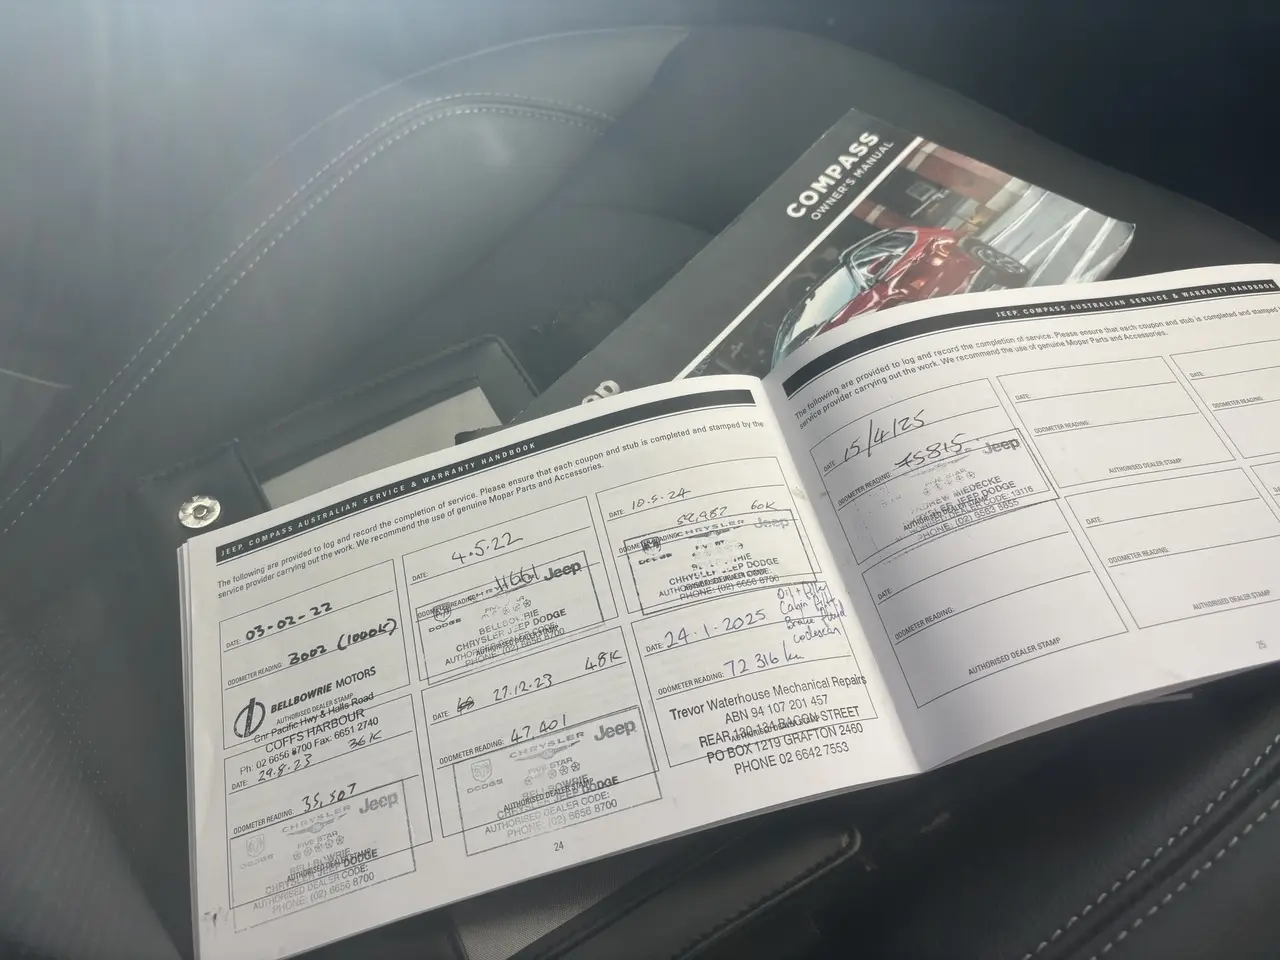 COMPASS
OWNER'S MANUAL
JEEP, COMPASS AUSTRALIAN SERVICE & WARRANTY HANDBOOK
The following are provided to log and record the completion of service. Please ensure that each coupon and stub is completed and stamped by the
service provider carrying out the work. We recommend the use of genuine Mopar Parts and Accessories.
DATE: 03-02-22
ODOMETER READING: 3002 (1000K)
BELLBOWRIE MOTORS
AUTHORISED DEALER STAMP
Cnr Pacific Hwy & Halls Road
COFFS HARBOUR
Ph: 02 6656 8700 Fax: 6651 2740
36K
DATE: 29.8.23
ODOMETER READING: 35,507
CHRYSLER Jeep
DODGE FIVE STAR
BELLBOWRIE
AUTHORISED DEALER STAMP
CHRYSLER JEEP DODGE
AUTHORISED DEALER CODE:
PHONE: (02) 6656 8700
DATE: 4.5.22
ODOMETER READING: 11661
Jeep
DODGE
BELLBOWRIE
CHRYSLER JEEP DODGE
AUTHORISED DEALER STAMP
PHONE: (02) 6656 8700
48K
DATE: 27.12.23
ODOMETER READING: 47,401
CHRYSLER Jeep
DODGE FIVE STAR
BELLBOWRIE
AUTHORISED DEALER STAMP
CHRYSLER JEEP DODGE
AUTHORISED DEALER CODE:
PHONE: (02) 6656 8700
DATE: 10.5.24
59,982 60K
ODOMETER READING:
CHRYSLER Jeep
DODGE
CHRYSLER JEEP DODGE
AUTHORISED DEALER CODE:
PHONE: (02) 6656 8700
Oil + Filter
Cabin Filter
Brake Fluid
codescan
DATE: 24.1.2025
ODOMETER READING: 72 316 km
Trevor Waterhouse Mechanical Repairs
ABN 94 107 201 457
REAR 130-134 BACON STREET
AUTHORISED DEALER STAMP
PO BOX 1219 GRAFTON 2460
PHONE 02 6642 7553
24
JEEP, COMPASS AUSTRALIAN SERVICE & WARRANTY HANDBOOK
The following are provided to log and record the completion of service. Please ensure that each coupon and stub is completed and stamped
service provider carrying out the work. We recommend the use of genuine Mopar Parts and Accessories.
DATE: 15/4/25
ODOMETER READING: 75815
Jeep
ANDREW MIEDECKE
JEEP DODGE
AUTHORISED DEALER CODE: 13116
PHONE: (02) 6583 8855
DATE:
ODOMETER READING:
AUTHORISED DEALER STAMP
DATE:
ODOMETER READING:
AUTHORISED DEALER STAMP
DATE:
ODOMETER READING:
AUTHORISED DEALER STAMP
DATE:
ODOMETER READING:
25